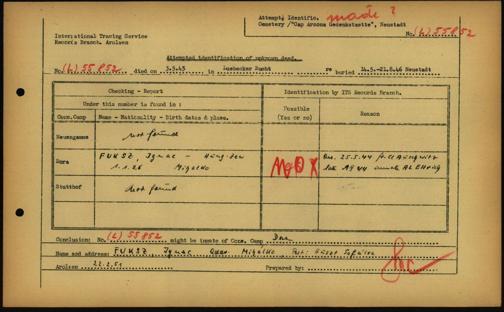 Attempt. Identific. made ?
Cemetery /"Cap Arcona Gedenkstaette", Neustadt
No. (L) 55852
International Tracing Service
Records Branch, Arolsen
Attempted identification of unknown dead.
No. (L) 55852 died on 3.5.45 in Luebecker Bucht re buried 14.5.-21.8.46 Neustadt
Checking - Report
Identification by ITS Records Branch.
Under this number is found in :
Possible
(Yes or no)
Reason
Conc.Camp
Name - Nationality - Birth dates & place.
Neuengamme
not found
Dora
FUKSZ, Ignac - Hung.
1.1.26
No
25.5.44
Stutthof
not found
Conclusion: No. (L) 55852 might be inmate of Conc. Camp Dora
Name and address: FUKSZ, Ignac
Arolsen 22.2.51
Prepared by: